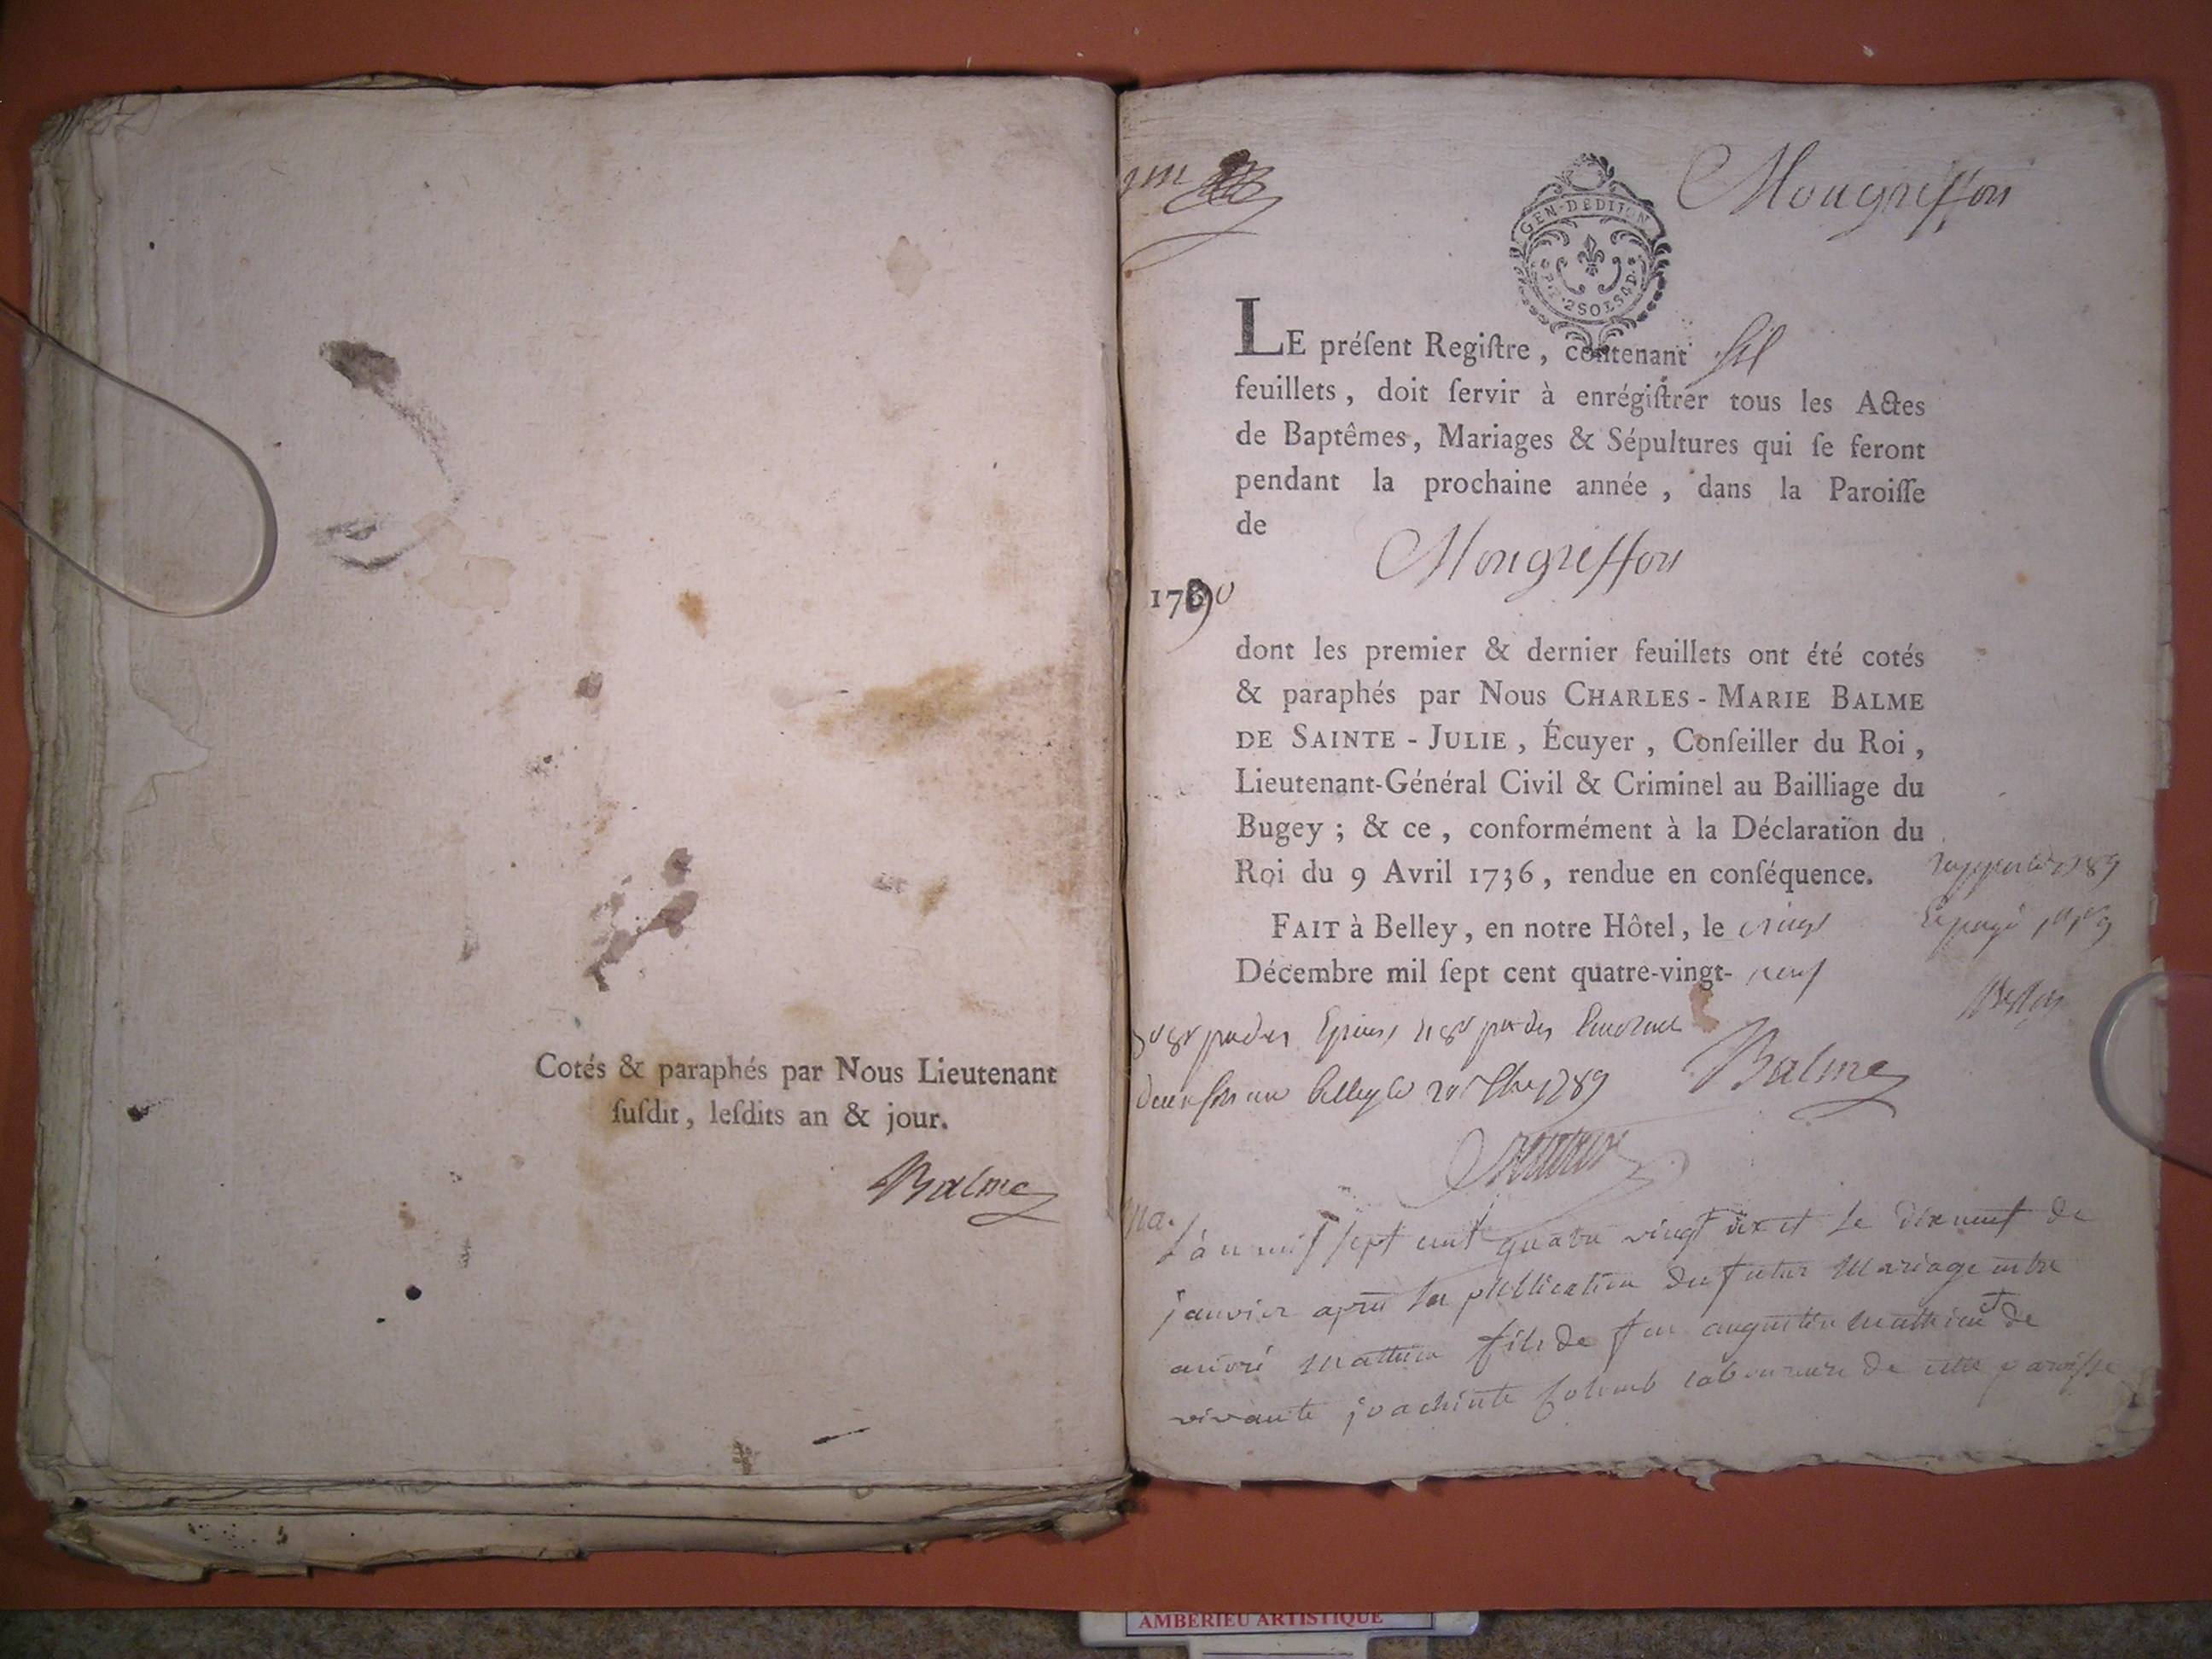 Cotés & paraphés par Nous Lieutenant
ſuſdit, leſdits an & jour.
Balme
Mongriffon
GEN·DEDIJON
LE préſent Regiſtre, contenant six
feuillets, doit ſervir à enrégiſtrer tous les Actes
de Baptêmes, Mariages & Sépultures qui ſe feront
pendant la prochaine année, dans la Paroiſſe
de
Mongriffon
1790
dont les premier & dernier feuillets ont été cotés
& paraphés par Nous CHARLES-MARIE BALME
DE SAINTE-JULIE, Écuyer, Conſeiller du Roi,
Lieutenant-Général Civil & Criminel au Bailliage du
Bugey; & ce, conformément à la Déclaration du
Roi du 9 Avril 1736, rendue en conſéquence.
FAIT à Belley, en notre Hôtel, le vingt
Décembre mil ſept cent quatre-vingt-neuf
Belley le 1789
Balme
L'an mil sept cent quatre vingt dix et le dixneuf de
janvier après la publication du futur Mariage entre
andré Mathieu fils de feu augustin Mathieu et de
vivante joachinte Colomb laboureur de cette paroisse
AMBERIEU ARTISTIQUE